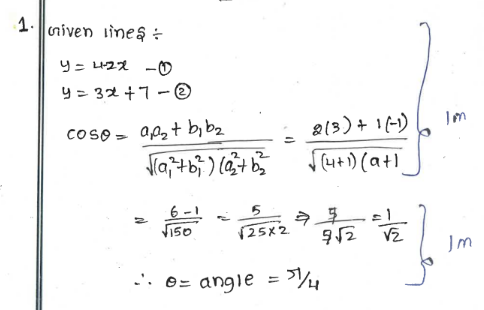 1. Given lines ÷
y = 4-2x - ①
y = 3x + 7 - ②
cosθ = a₁a₂ + b₁b₂ / √(a₁²+b₁²)(a₂²+b₂² = 2(3) + 1(-1) / √(4+1)(9+1 1m
= 6-1 / √150 = 5 / √25×2 ⇒ 5 / 5√2 = 1 / √2 1m
∴ θ = angle = π/4